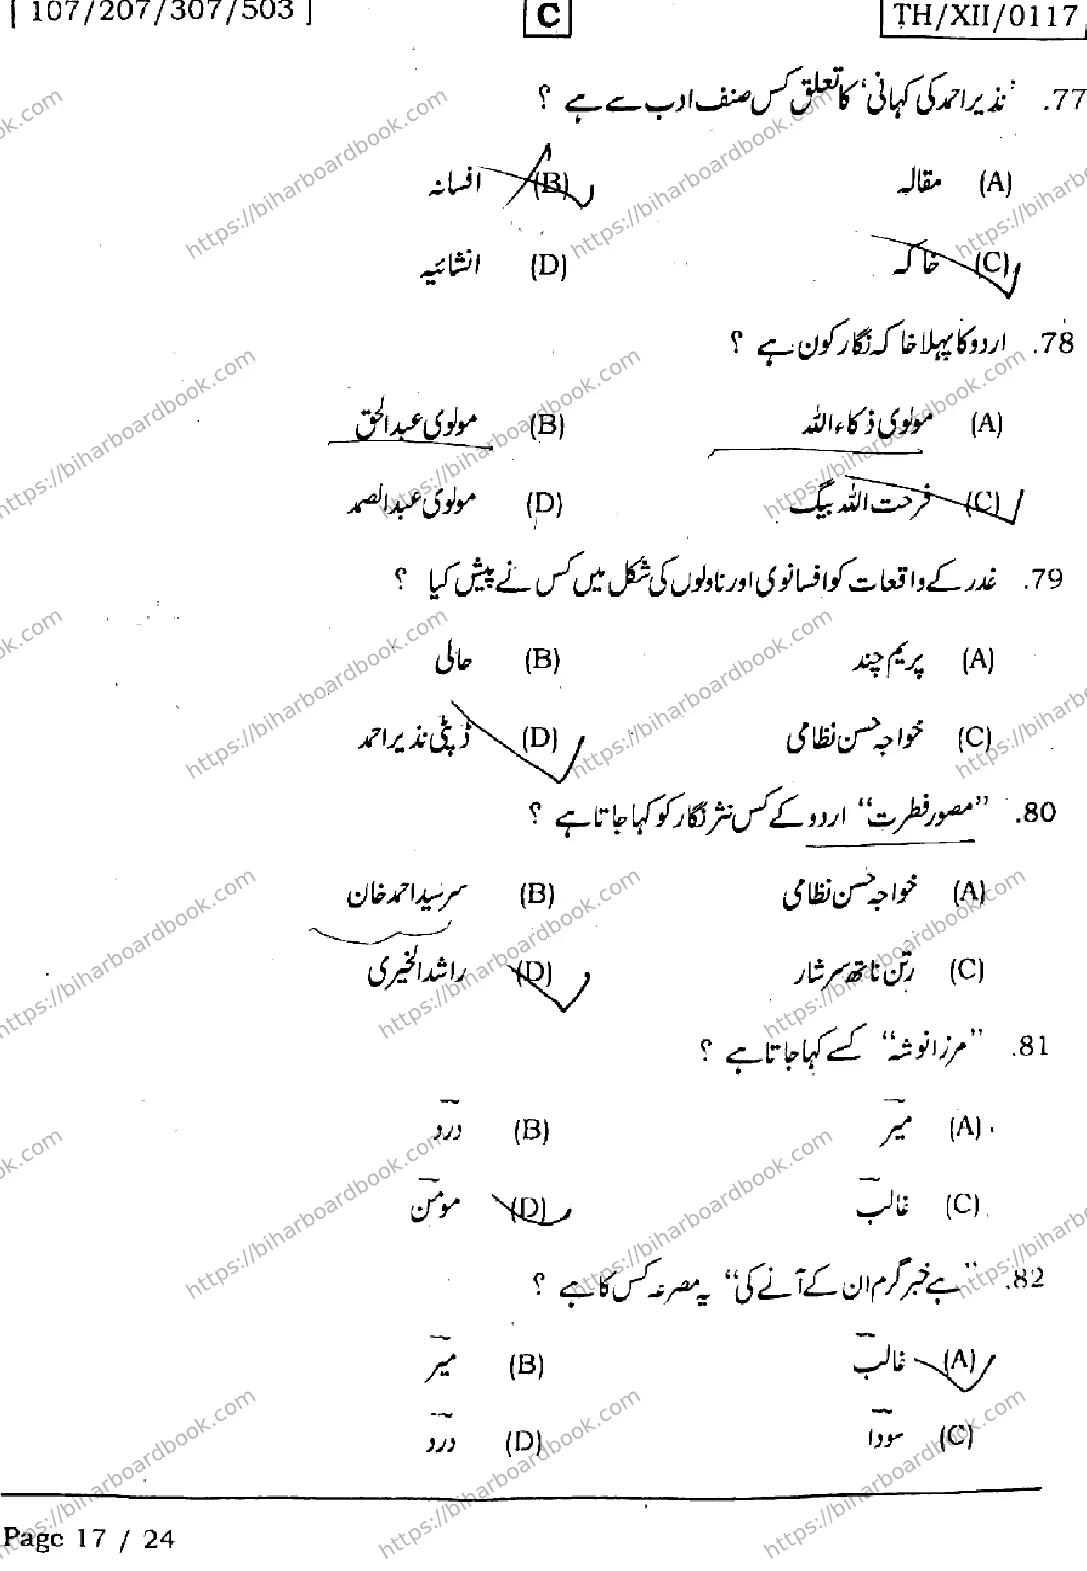 [ 107/207/307/503 ] C TH/XII/0117
77. 'نذیر احمد کی کہانی' کا تعلق کس صنف ادب سے ہے ؟
(A) مقالہ (B) افسانہ
(C) خاکہ (D) انشائیہ
78. اردو کا پہلا خاکہ نگار کون ہے ؟
(A) مولوی ذکاء اللہ (B) مولوی عبدالحق
(C) فرحت اللہ بیگ (D) مولوی عبدالصمد
79. غدر کے واقعات کو افسانوی اور ناولوں کی شکل میں کس نے پیش کیا ؟
(A) پریم چند (B) حالی
(C) خواجہ حسن نظامی (D) ڈپٹی نذیر احمد
80. ”مصور فطرت“ اردو کے کس نثر نگار کو کہا جاتا ہے ؟
(A) خواجہ حسن نظامی (B) سرسید احمد خان
(C) رتن ناتھ سرشار (D) راشد الخیری
81. ”مرزا نوشہ“ کسے کہا جاتا ہے ؟
(A) میر (B) درد
(C) غالب (D) مومن
82. ”ہے خبر گرم ان کے آنے کی“ یہ مصرعہ کس کا ہے ؟
(A) غالب (B) میر
(C) سودا (D) درد
Page 17 / 24
https://biharboardbook.com